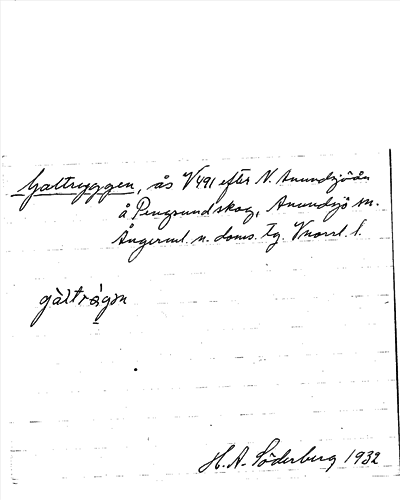 Galtryggen, ås V491 efter N. Anundsjöån
å Pengsundskog, Anundsjö sn.
Ångerml. n. doms. tg Vnorrl. l.
gàltrágən
H. A. Söderberg 1932